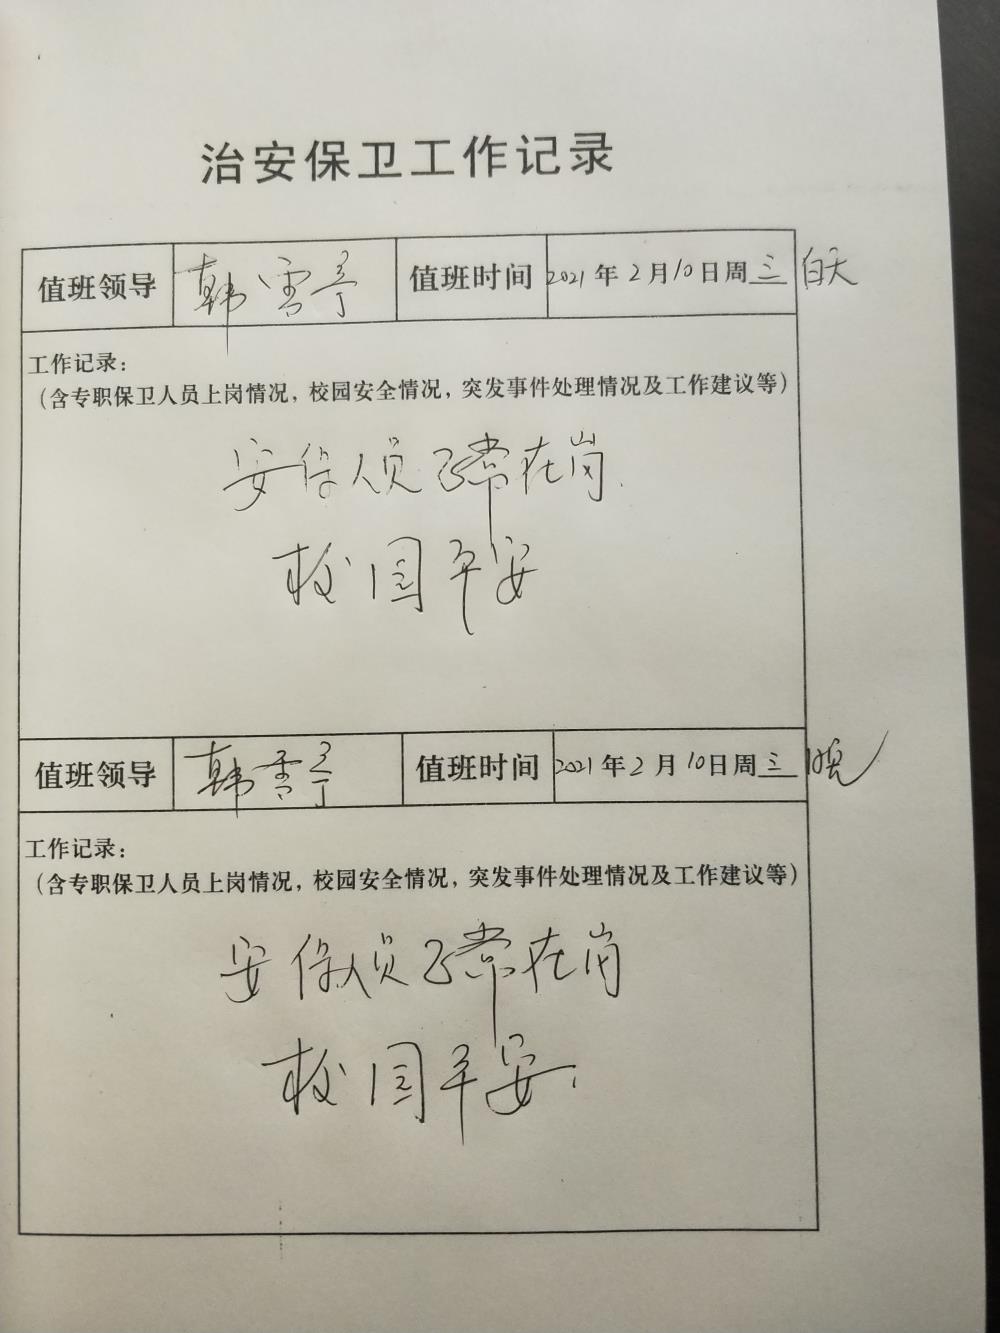 治安保卫工作记录
值班领导 韩雪亭 值班时间 2021年2月10日周三 白天
工作记录：
（含专职保卫人员上岗情况，校园安全情况，突发事件处理情况及工作建议等）
安保人员正常在岗.
校园平安
值班领导 韩雪亭 值班时间 2021年2月10日周三 晚
工作记录：
（含专职保卫人员上岗情况，校园安全情况，突发事件处理情况及工作建议等）
安保人员正常在岗
校园平安.